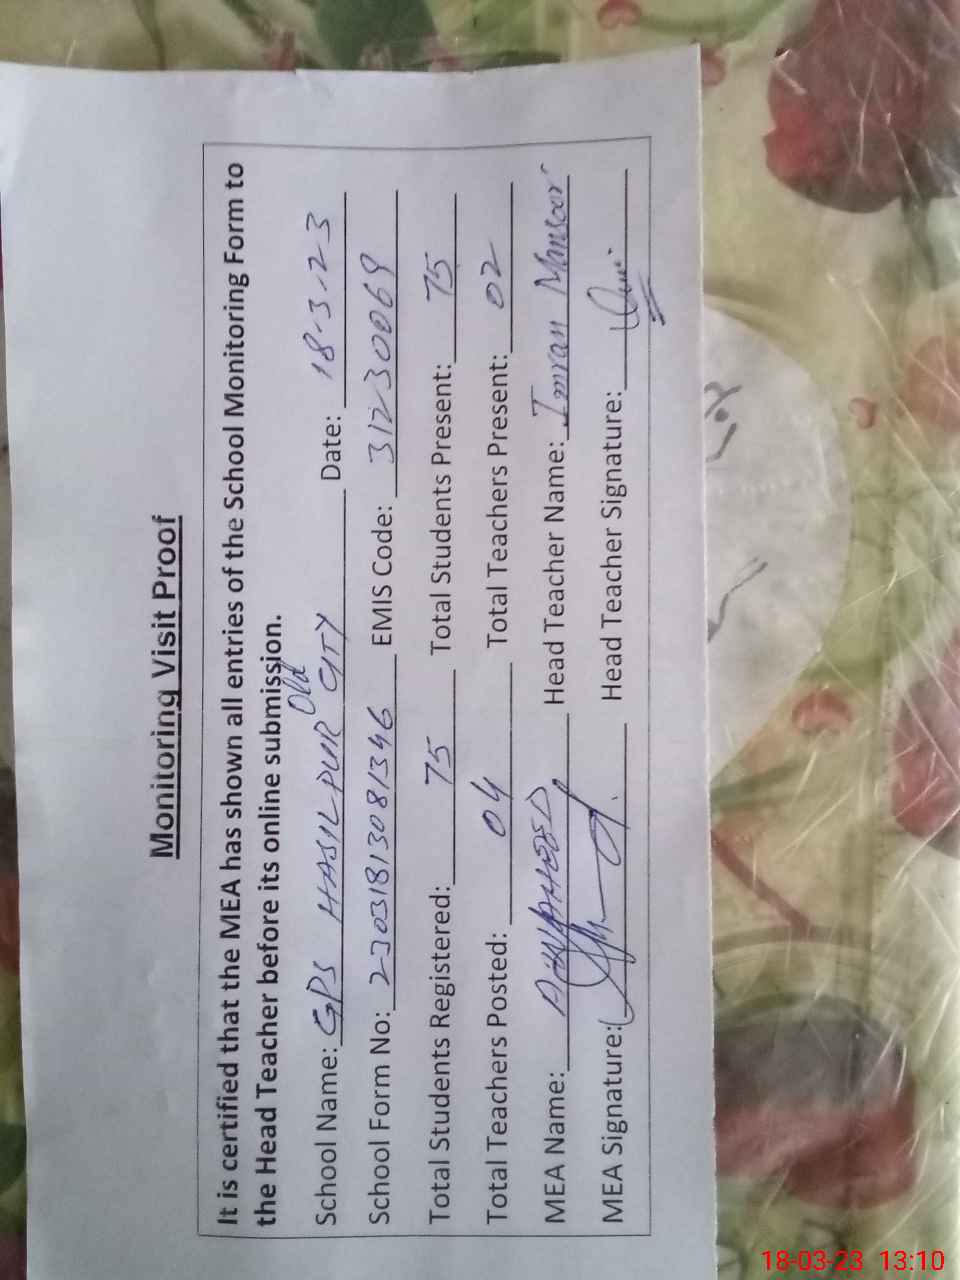 Monitoring Visit Proof
It is certified that the MEA has shown all entries of the School Monitoring Form to
the Head Teacher before its online submission.
School Name: GPS HASILPUR Old CITY Date: 18-3-23
School Form No: 23031813081346 EMIS Code: 31230069
Total Students Registered: 75 Total Students Present: 75
Total Teachers Posted: 04 Total Teachers Present: 02
MEA Name: Head Teacher Name: Imran Mansoor
MEA Signature: Head Teacher Signature:
18-03-23 13:10